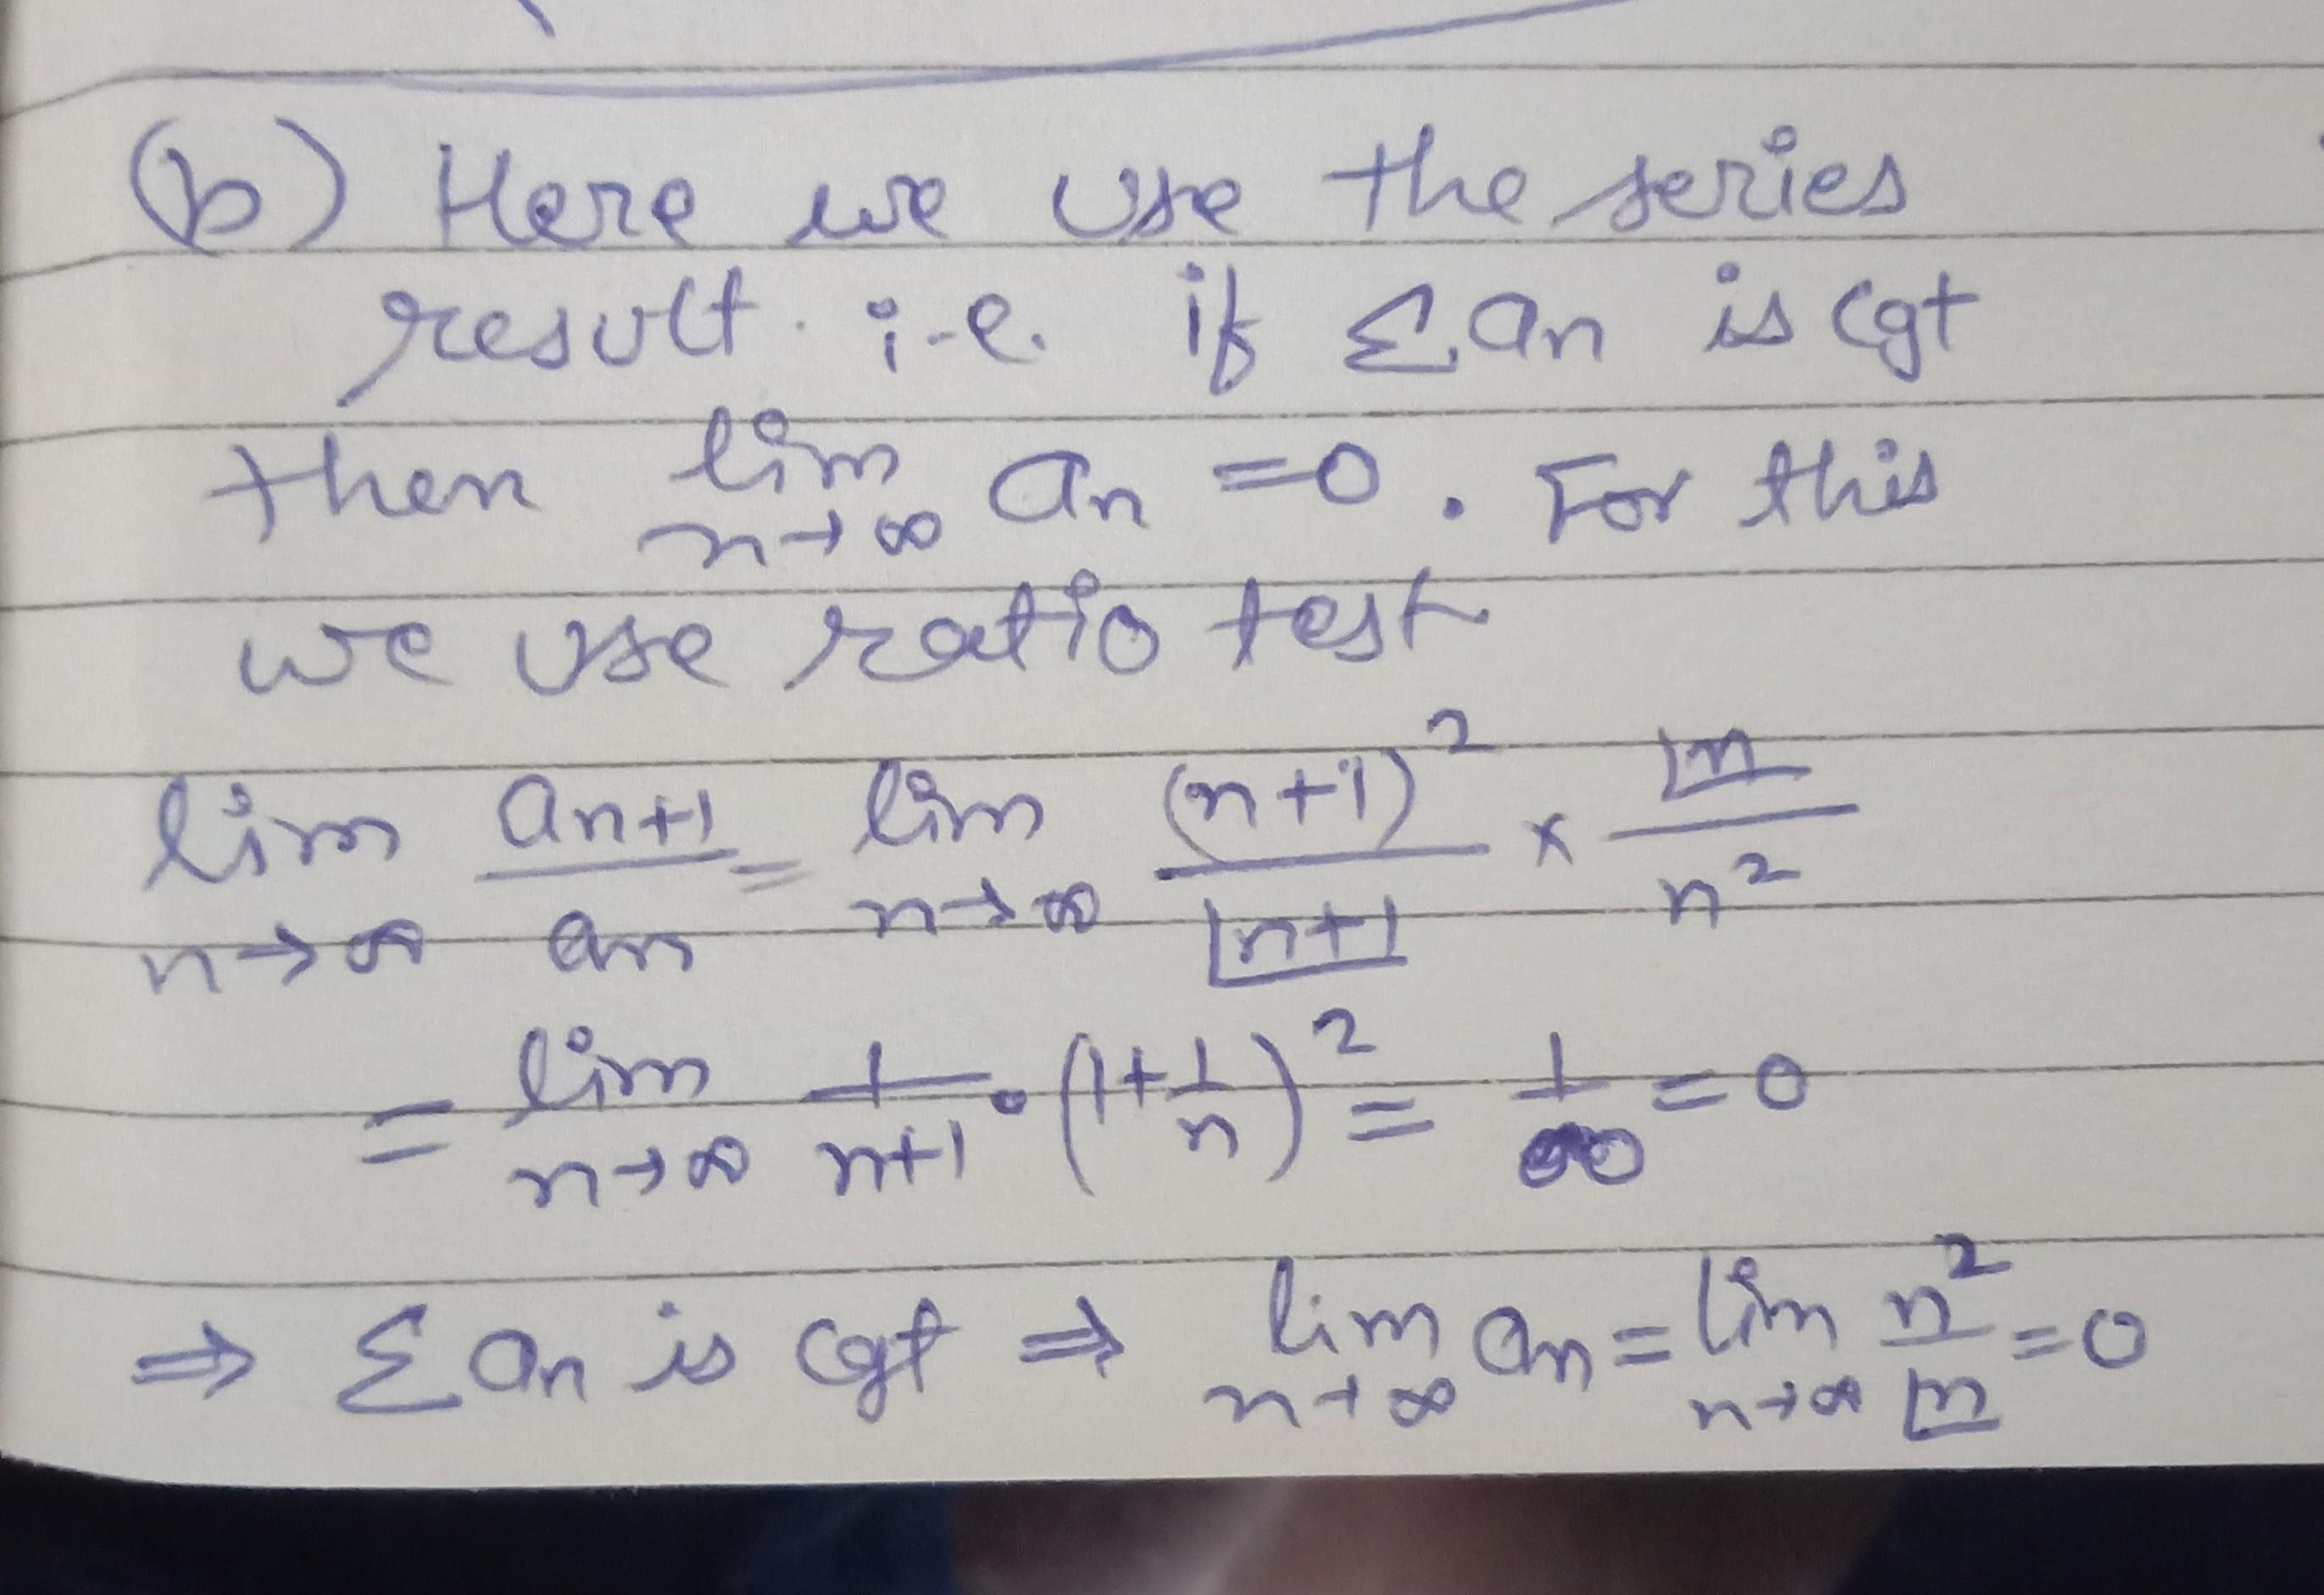 (b) Here we use the series
result i-e. if Σ an is cgt
then lim n→∞ an =0. For this
we use ratio test
lim n→∞ an+1/an = lim n→∞ (n+1)²/⌊n+1 × ⌊n/n²
= lim n→∞ 1/n+1 · (1+1/n)² = 1/∞ =0
⇒ Σ an is cgt ⇒ lim n→∞ an = lim n→∞ n²/⌊n =0